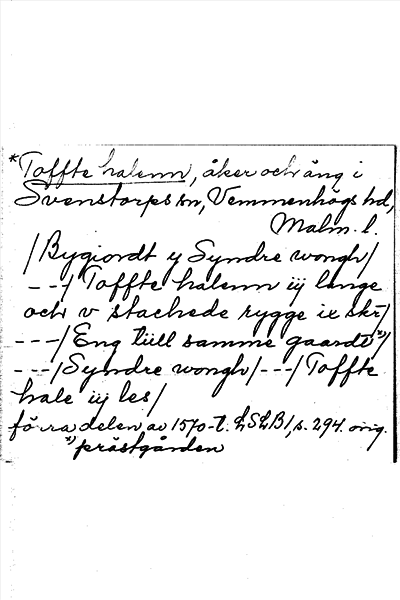 *Toffte halenn, åker och äng i
Svenstorps sn, Vemmenhögs hd,
Malm. l.
/Bygiordt y Syndre wongh/
---/Toffte halenn iij lange
och v stachede rygge ix skr/
---/Eng tiill samme gaardt*)/
---/Syndre wongh/---/Toffte
hale iij les/
förra delen av 1570-t. LSLB1, s. 294. orig.
*) prästgården